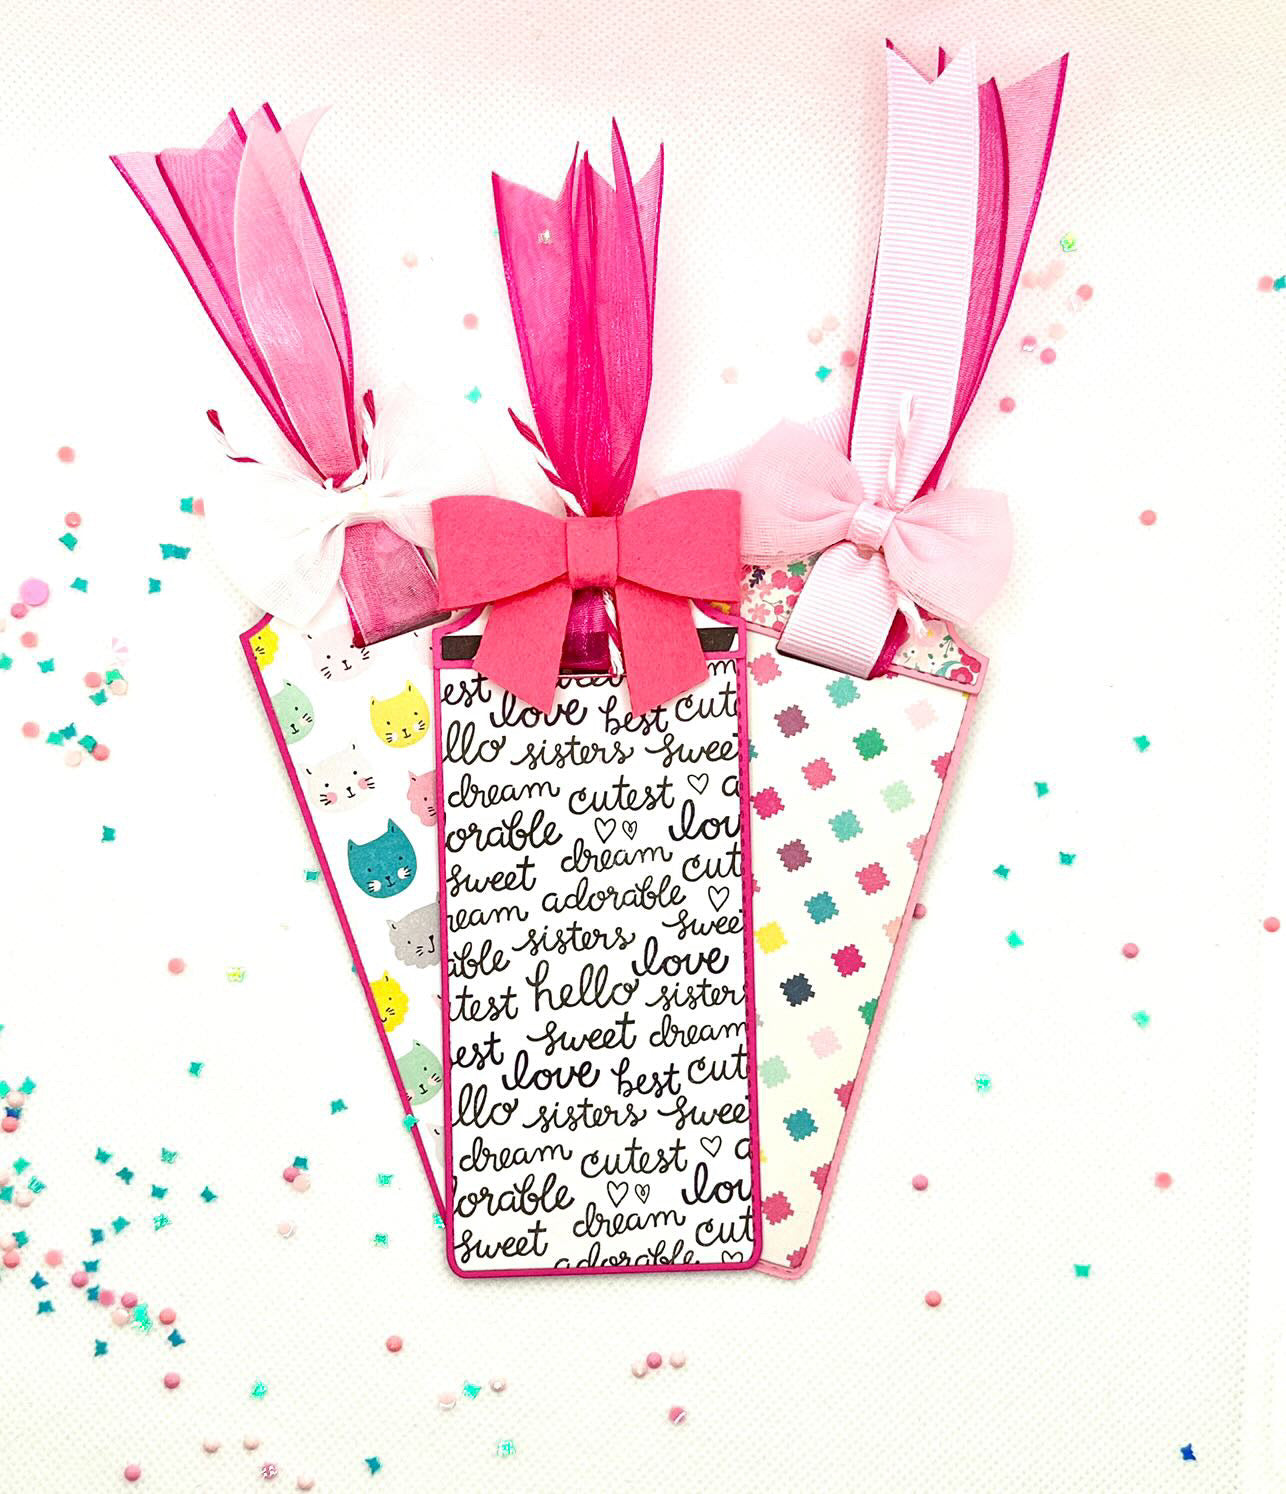 est sweet m
love best cut
llo sisters swee
dream cutest a
orable lov
sweet dream cut
ream adorable
able sisters swee
hello love
test sister
est sweet dream
love best cut
llo sisters swee
dream cutest a
orable lov
sweet dream cut
adorable